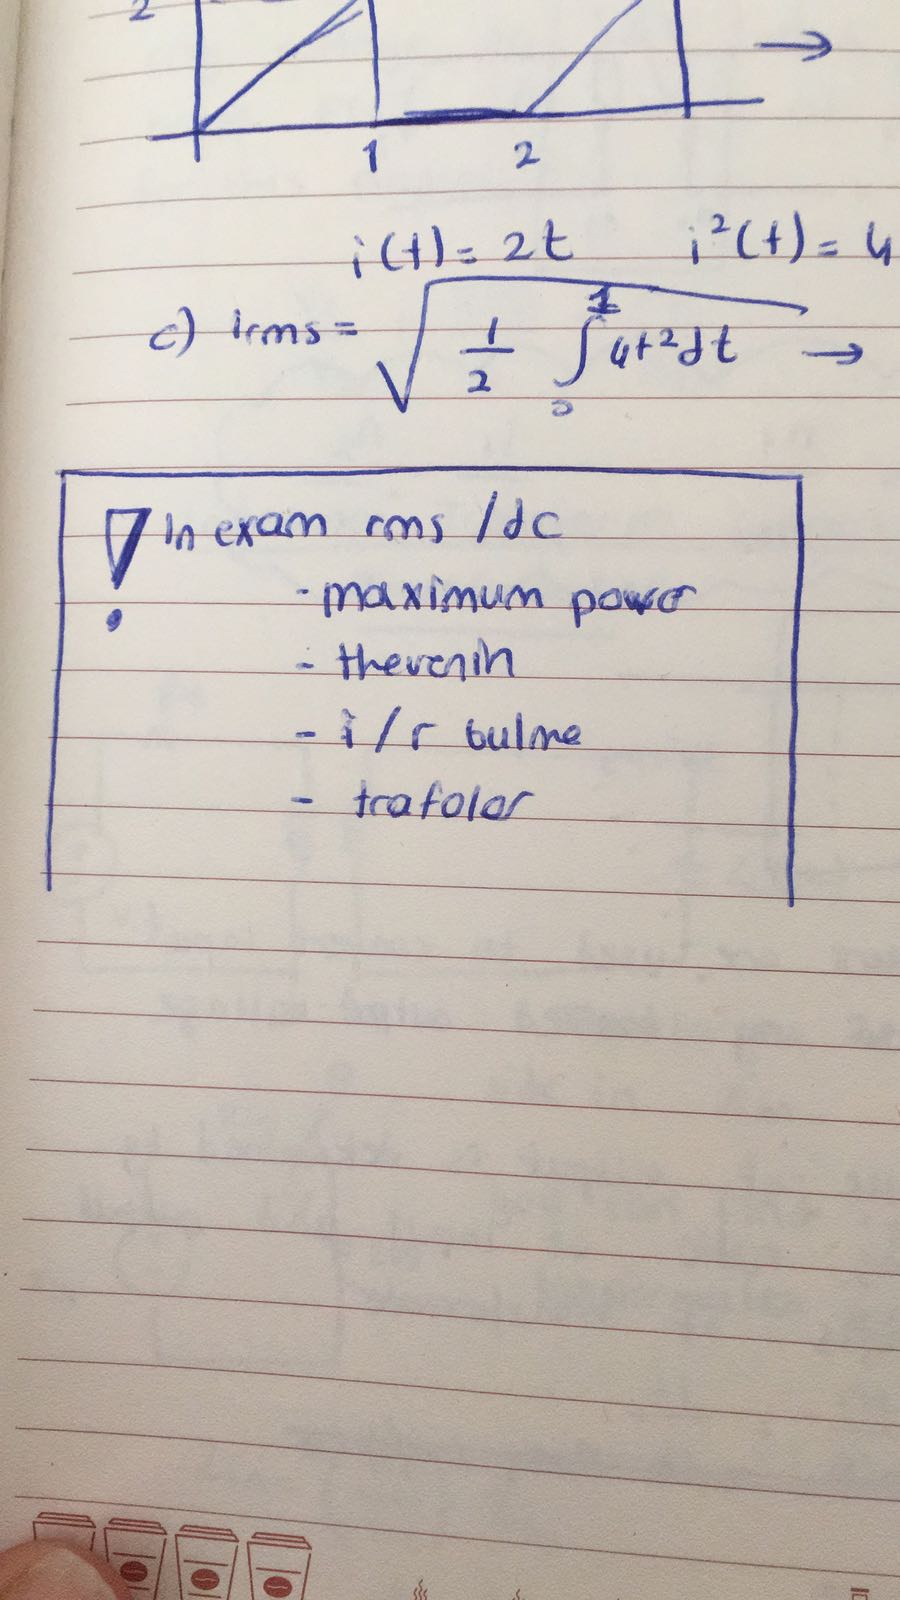 2
1 2
i(t) = 2t i²(t) = 4
c) irms = √ 1/2 ∫₀¹ 4t²dt →
! In exam rms / dc
- maximum power
- thevenin
- i / r bulma
- trafolar